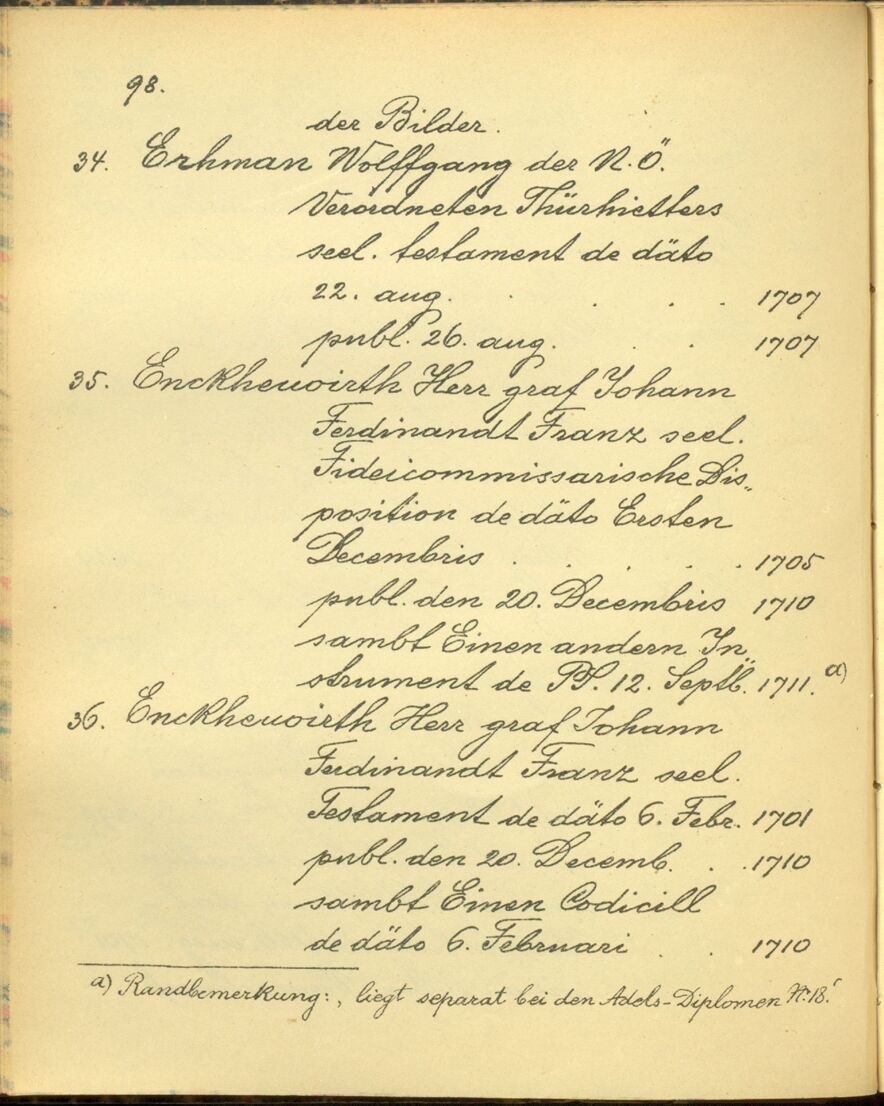 98.
der Bilder.
34. Erhman Wolffgang der N. Ö.
Verordneten Thürhietters
seel. testament de däto
22. aug. . . . . 1707
publ. 26. aug. . . 1707
35. Enckhewirth Herr graf Johann
Ferdinandt Franz seel.
Fideicommissarische Dis„
position de däto Ersten
Decembris . . . . . 1705
publ. den 20. Decembris 1710
sambt Einen andern In„
strument de PS. 12. Septb. 1711. a)
36. Enckhewirth Herr graf Johann
Ferdinandt Franz seel.
Testament de däto 6. Febr. 1701
publ. den 20. Decemb. . . 1710
sambt Einen Codicill
de däto 6. Februari . . 1710
a) Randbemerkung: , liegt separat bei den Adels-Diplomen N: 18.'